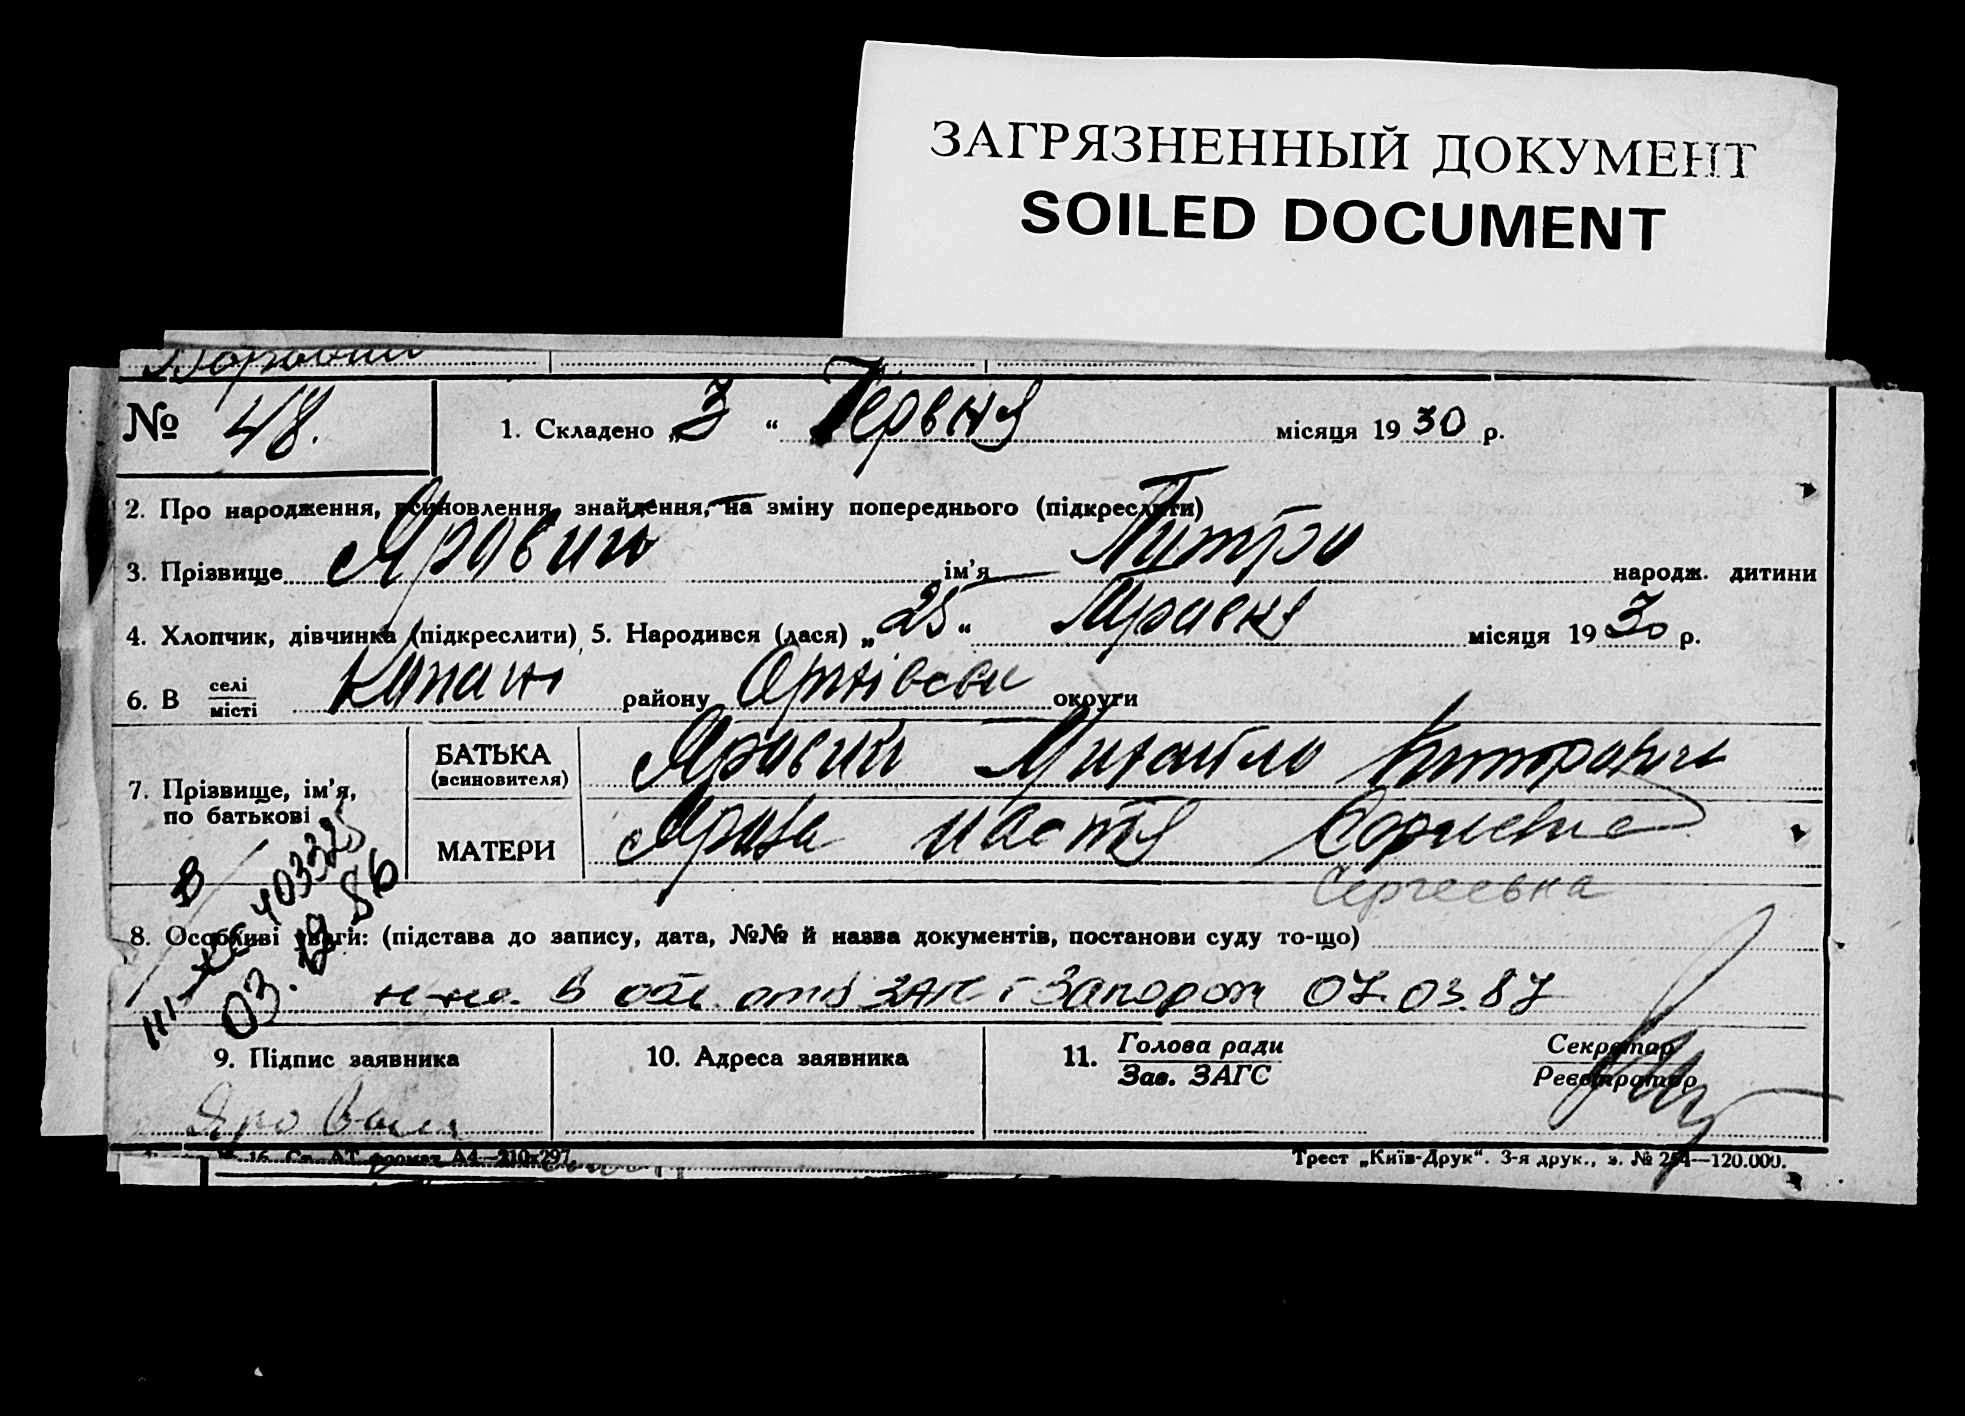 ЗАГРЯЗНЕННЫЙ ДОКУМЕНТ
SOILED DOCUMENT
№ 48.
1. Складено „3“ Червня місяця 1930 р.
2. Про народження, всиновлення, знайдення, на зміну попереднього (підкреслити)
3. Прізвище Яровий ім'я Питро народж. дитини
4. Хлопчик, дівчинка (підкреслити) 5. Народився (лася) „25“ Травня місяця 1930 р.
6. В селі місті Копани району округи
7. Прізвище, ім'я, по батькові
БАТЬКА (всиновителя) Яровий Михайло
МАТЕРИ Ярова Настя
Сергеевна
8. Особливі уваги: (підстава до запису, дата, №№ й назва документів, постанови суду то-що)
403325
03. 12 86
В обл. отд ЗАГС г Запорож 07.03.87
9. Підпис заявника
10. Адреса заявника
11. Голова ради Зав. ЗАГС
Секретар Реєстратор
Яровий
формат А4—210х297
Трест „Київ-Друк“. 3-я друк., з. № 254—120.000.